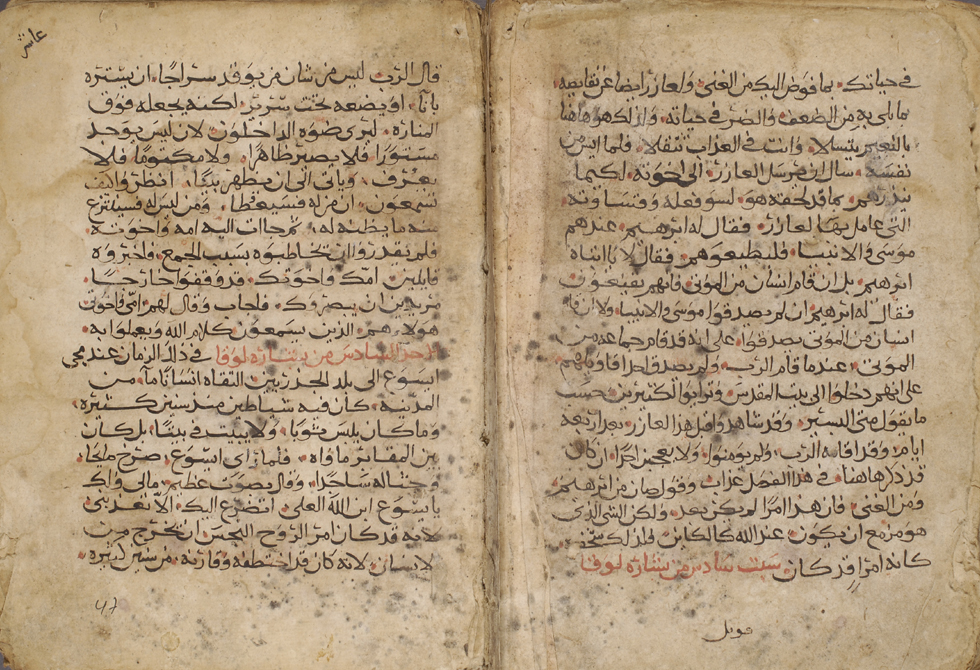 في حياتك بما فوض اليك من الغنى ولعازر ايضا عن نقايصه
بما بلى به من الضعف والضر في حياته ولذلك هو هاهنا
بالنعيم يتسلا وانت في العذاب تتقلا فلما ايس من
نفسه سال ان يرسل العازر الى اخوته لكيما
ينذرهم بما قد لحقه هو لسو فعله وقساوته
التي عامل بها لعازر فقال له ابرهيم عندهم
موسى والانبيا فليطيعوهم فقال لا يا ابتاه
ابرهيم بل ان قام انسان من الموتى فانهم
فقال له ابرهيم ان لم يصدقوا موسى والانبيا ولا ان قام
انسان من الموتى يصدقوا على انه قد قام جماعه من
الموتى عندما قام الرب ولم يصدق احد اقاويلهم
على انهم دخلوا الى بيت المقدس وترايوا لكثيرين حسب
ما يقول متى البشير وقد شاهدوا قبل هذا العازر بعد اربعه
ايام وقد اقامه الرب ولم يومنوا ولا ان كان
قد ذكر هاهنا في هذا الفصل عذاب وقول صار من ابرهيم
ومن الغني فان هذا امرا لم يكن بعد ولكن الشي الذي
هو مزمع ان يكون عند الله كالكاين فلذلك
كانه امرا قد كان سبت سادس من بشاره لوقا
قوبل
عاشر
قال الرب ليس من شان من يوقد سراجا ان يستره
بانا او يضعه تحت سرير لكنه يجعله فوق
المناره ليرى ضوه الداخلون لان ليس يوجد
مستورا فلا يصير ظاهرا ولا مكتوما فلا
يعرف وياتي الى ان يظهر بدئا انظروا كيف
تسمعون ان من له فسيعطا ومن ليس له فسينتزع
منه ما يظنه له ثم جات اليه امه واخوته
فلم يقدروا ان يخاطبوه بسبب الجمع فاخبروه
قايلين امك واخوتك قد وقفوا خارجا
مريدين ان يبصروك فاجاب وقال لهم امي واخوتي
هولاء هم الذين يسمعون كلام الله ويعملوا به
الاحد السادس من بشاره لوقا في ذلك الزمان عند مجي
ايسوع الى بلد الجدرزيين التقاه انسانا ما من
المدينه كان فيه شياطين منذ سنين كثيره
وما كان يلبس ثوبا ولا يبيت في بيتا بل كان
بين المقابر ماواه فلما راى ايسوع صرخ ملجا
وجثا له ساجدا وقال بصوت عظيم مالي ولك
يا يسوع ابن الله العلي اتضرع اليك الا تعذبني
لانه قد كان امر الروح النجس ان تخرج من
الانسان لانه كان قد اختطفه وقارنه من سنين كثيره
47